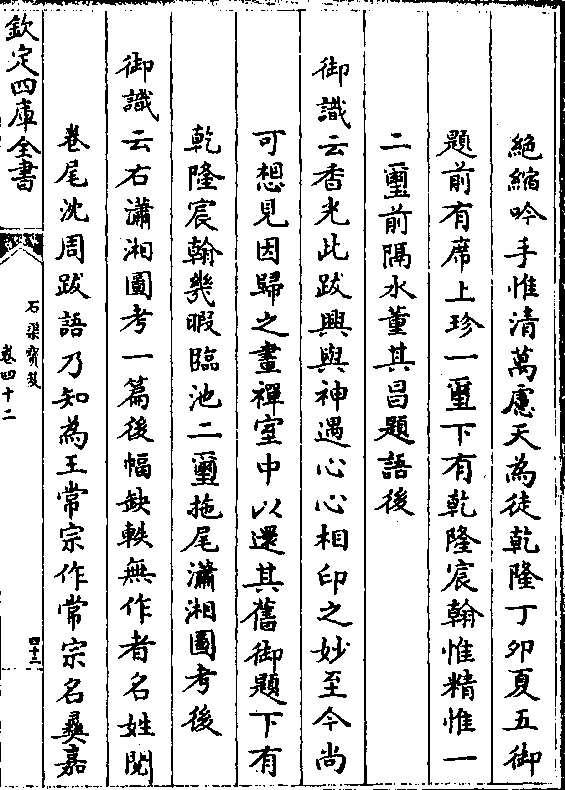 絶縮吟手惟清萬慮天為徒乾隆丁卯夏五御
題前有席上珍一璽下有乾隆宸翰惟精惟一
二璽前隔水董其昌題語後
御識云香光此跋興與神遇心心相印之妙至今尚
可想見因歸之畫禪室中以還其舊御題下有
乾隆宸翰㡬暇臨池二璽拖尾瀟湘圖考後
御識云右瀟湘圖考一篇後幅缺軼無作者名姓閲
卷尾沈周跋語乃知為王常宗作常宗名彝嘉
欽定四庫全書
石渠寳笈
卷四十二
四十三